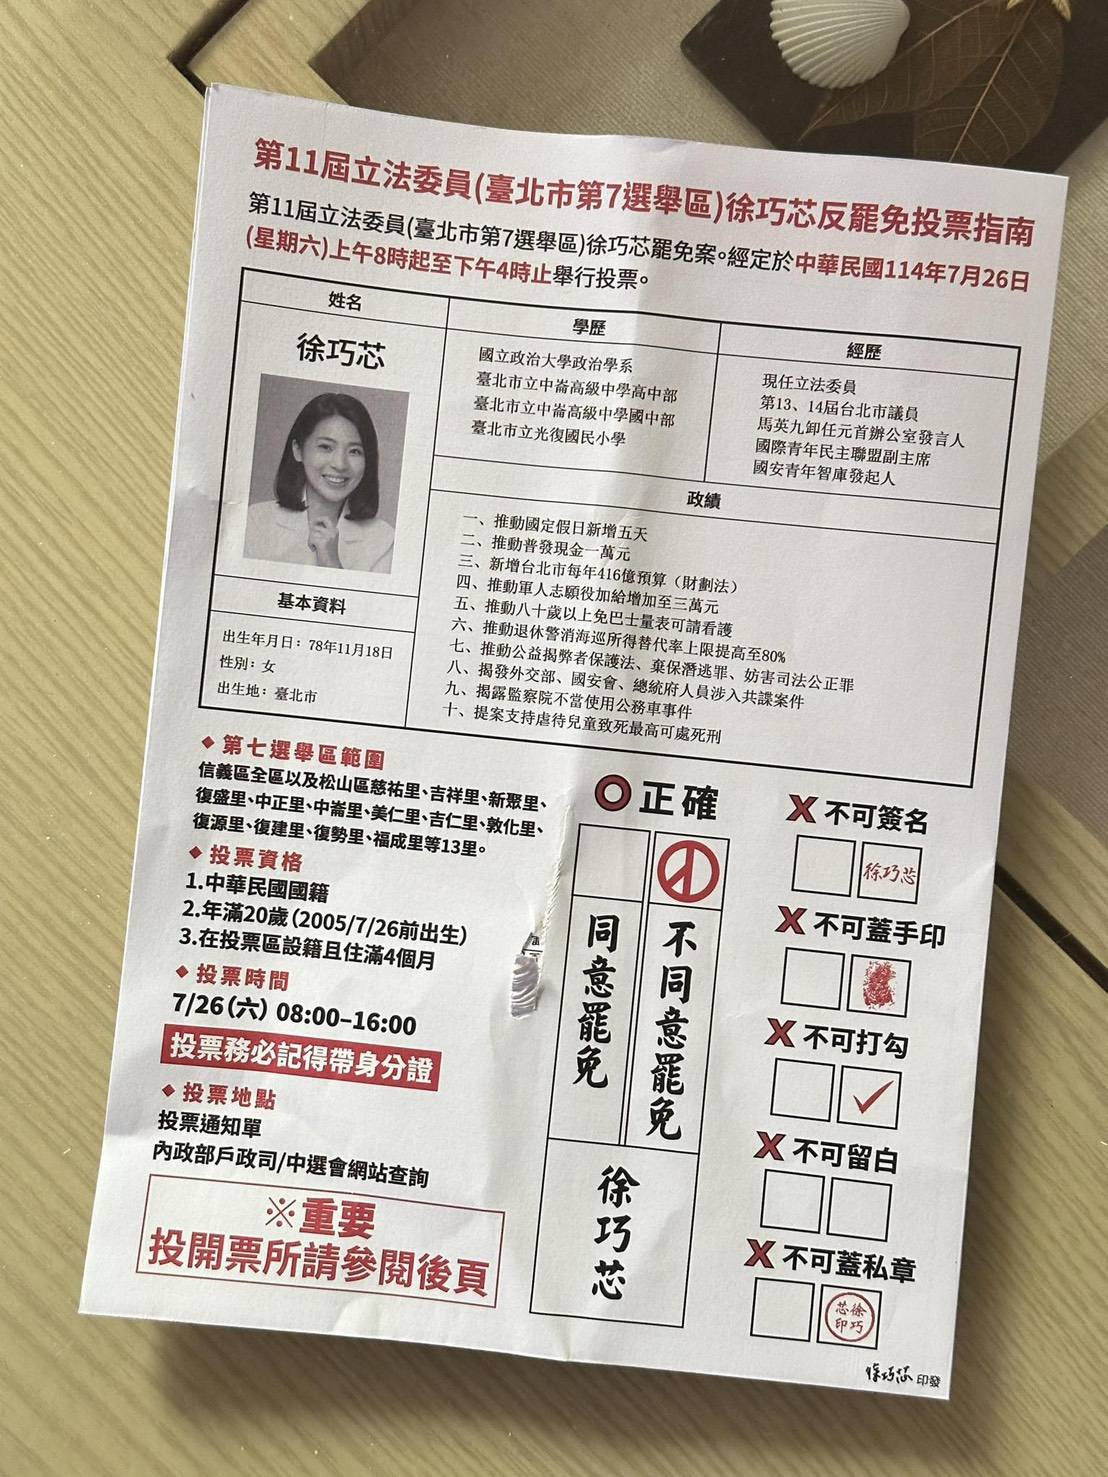 第11屆立法委員(臺北市第7選舉區)徐巧芯反罷免投票指南
第11屆立法委員(臺北市第7選舉區)徐巧芯罷免案。經定於中華民國114年7月26日
(星期六)上午8時起至下午4時止舉行投票。
姓名
徐巧芯
學歷
國立政治大學政治學系
臺北市立中崙高級中學高中部
臺北市立中崙高級中學國中部
臺北市立光復國民小學
經歷
現任立法委員
第13、14屆台北市議員
馬英九卸任元首辦公室發言人
國際青年民主聯盟副主席
國安青年智庫發起人
政績
一、推動國定假日新增五天
二、推動普發現金一萬元
三、新增台北市每年416億預算（財劃法）
四、推動軍人志願役加給增加至三萬元
五、推動八十歲以上免巴士量表可請看護
六、推動退休警消海巡所得替代率上限提高至80%
七、推動公益揭弊者保護法、棄保潛逃罪、妨害司法公正罪
八、揭發外交部、國安會、總統府人員涉入共諜案件
九、揭露監察院不當使用公務車事件
十、提案支持虐待兒童致死最高可處死刑
基本資料
出生年月日：78年11月18日
性別：女
出生地：臺北市
◆ 第七選舉區範圍
信義區全區以及松山區慈祐里、吉祥里、新聚里、
復盛里、中正里、中崙里、美仁里、吉仁里、敦化里、
復源里、復建里、復勢里、福成里等13里。
◆ 投票資格
1.中華民國國籍
2.年滿20歲（2005/7/26前出生）
3.在投票區設籍且住滿4個月
◆ 投票時間
7/26（六）08:00–16:00
投票務必記得帶身分證
◆ 投票地點
投票通知單
內政部戶政司/中選會網站查詢
※重要
投開票所請參閱後頁
正確
同意罷免
不同意罷免
徐巧芯
X 不可簽名
徐巧芯
X 不可蓋手印
X 不可打勾
X 不可留白
X 不可蓋私章
徐巧芯印
徐巧芯 印發